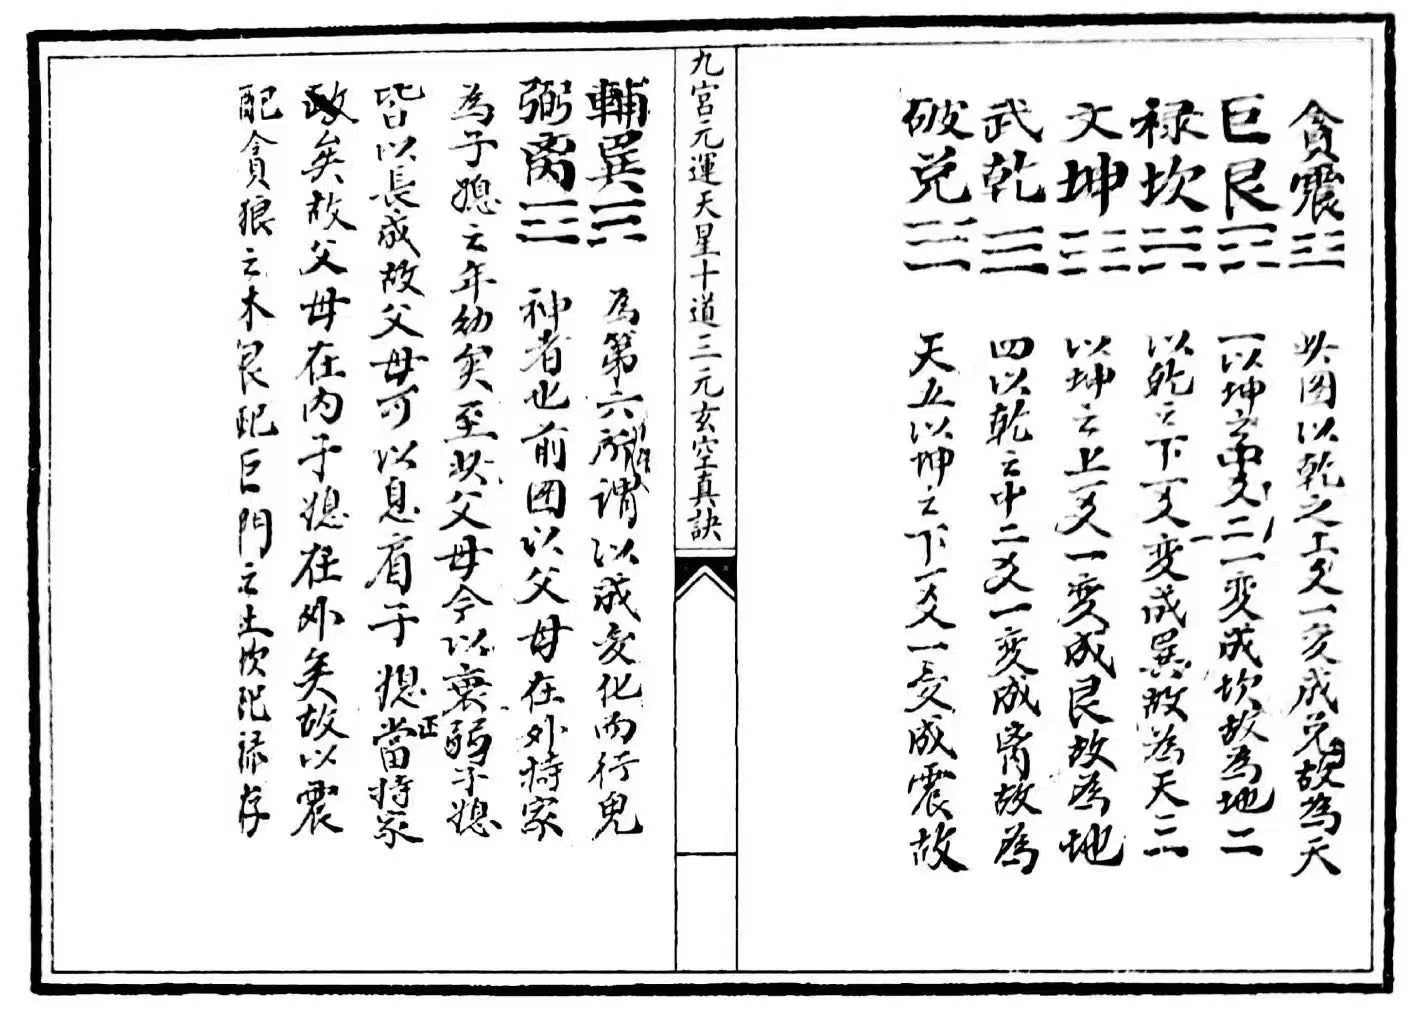 貪震☳ 此图以乾之上爻一变成兑故為天
巨艮☶ 一以坤之中爻二一变成坎故為地二
禄坎☵ 以乾之下一爻变成巽故為天三
文坤☷ 以坤之上一爻一变成艮故為地
武乾☰ 四以乾之中二爻一变成离故為
破兑☱ 天五以坤之下一爻一变成震故
九宮元運天星十道三元玄空真訣
輔巽☴ 為第六所谓以成变化而行鬼
弼离☲ 神者也前图以父母在外持家
為子媳之年幼矣至此父母今以衰弱子媳
皆以長成故父母可以息肩于媳正當持家
政矣故父母在内子媳在外矣故以震
配貪狼之木艮配巨門之土坎配禄存